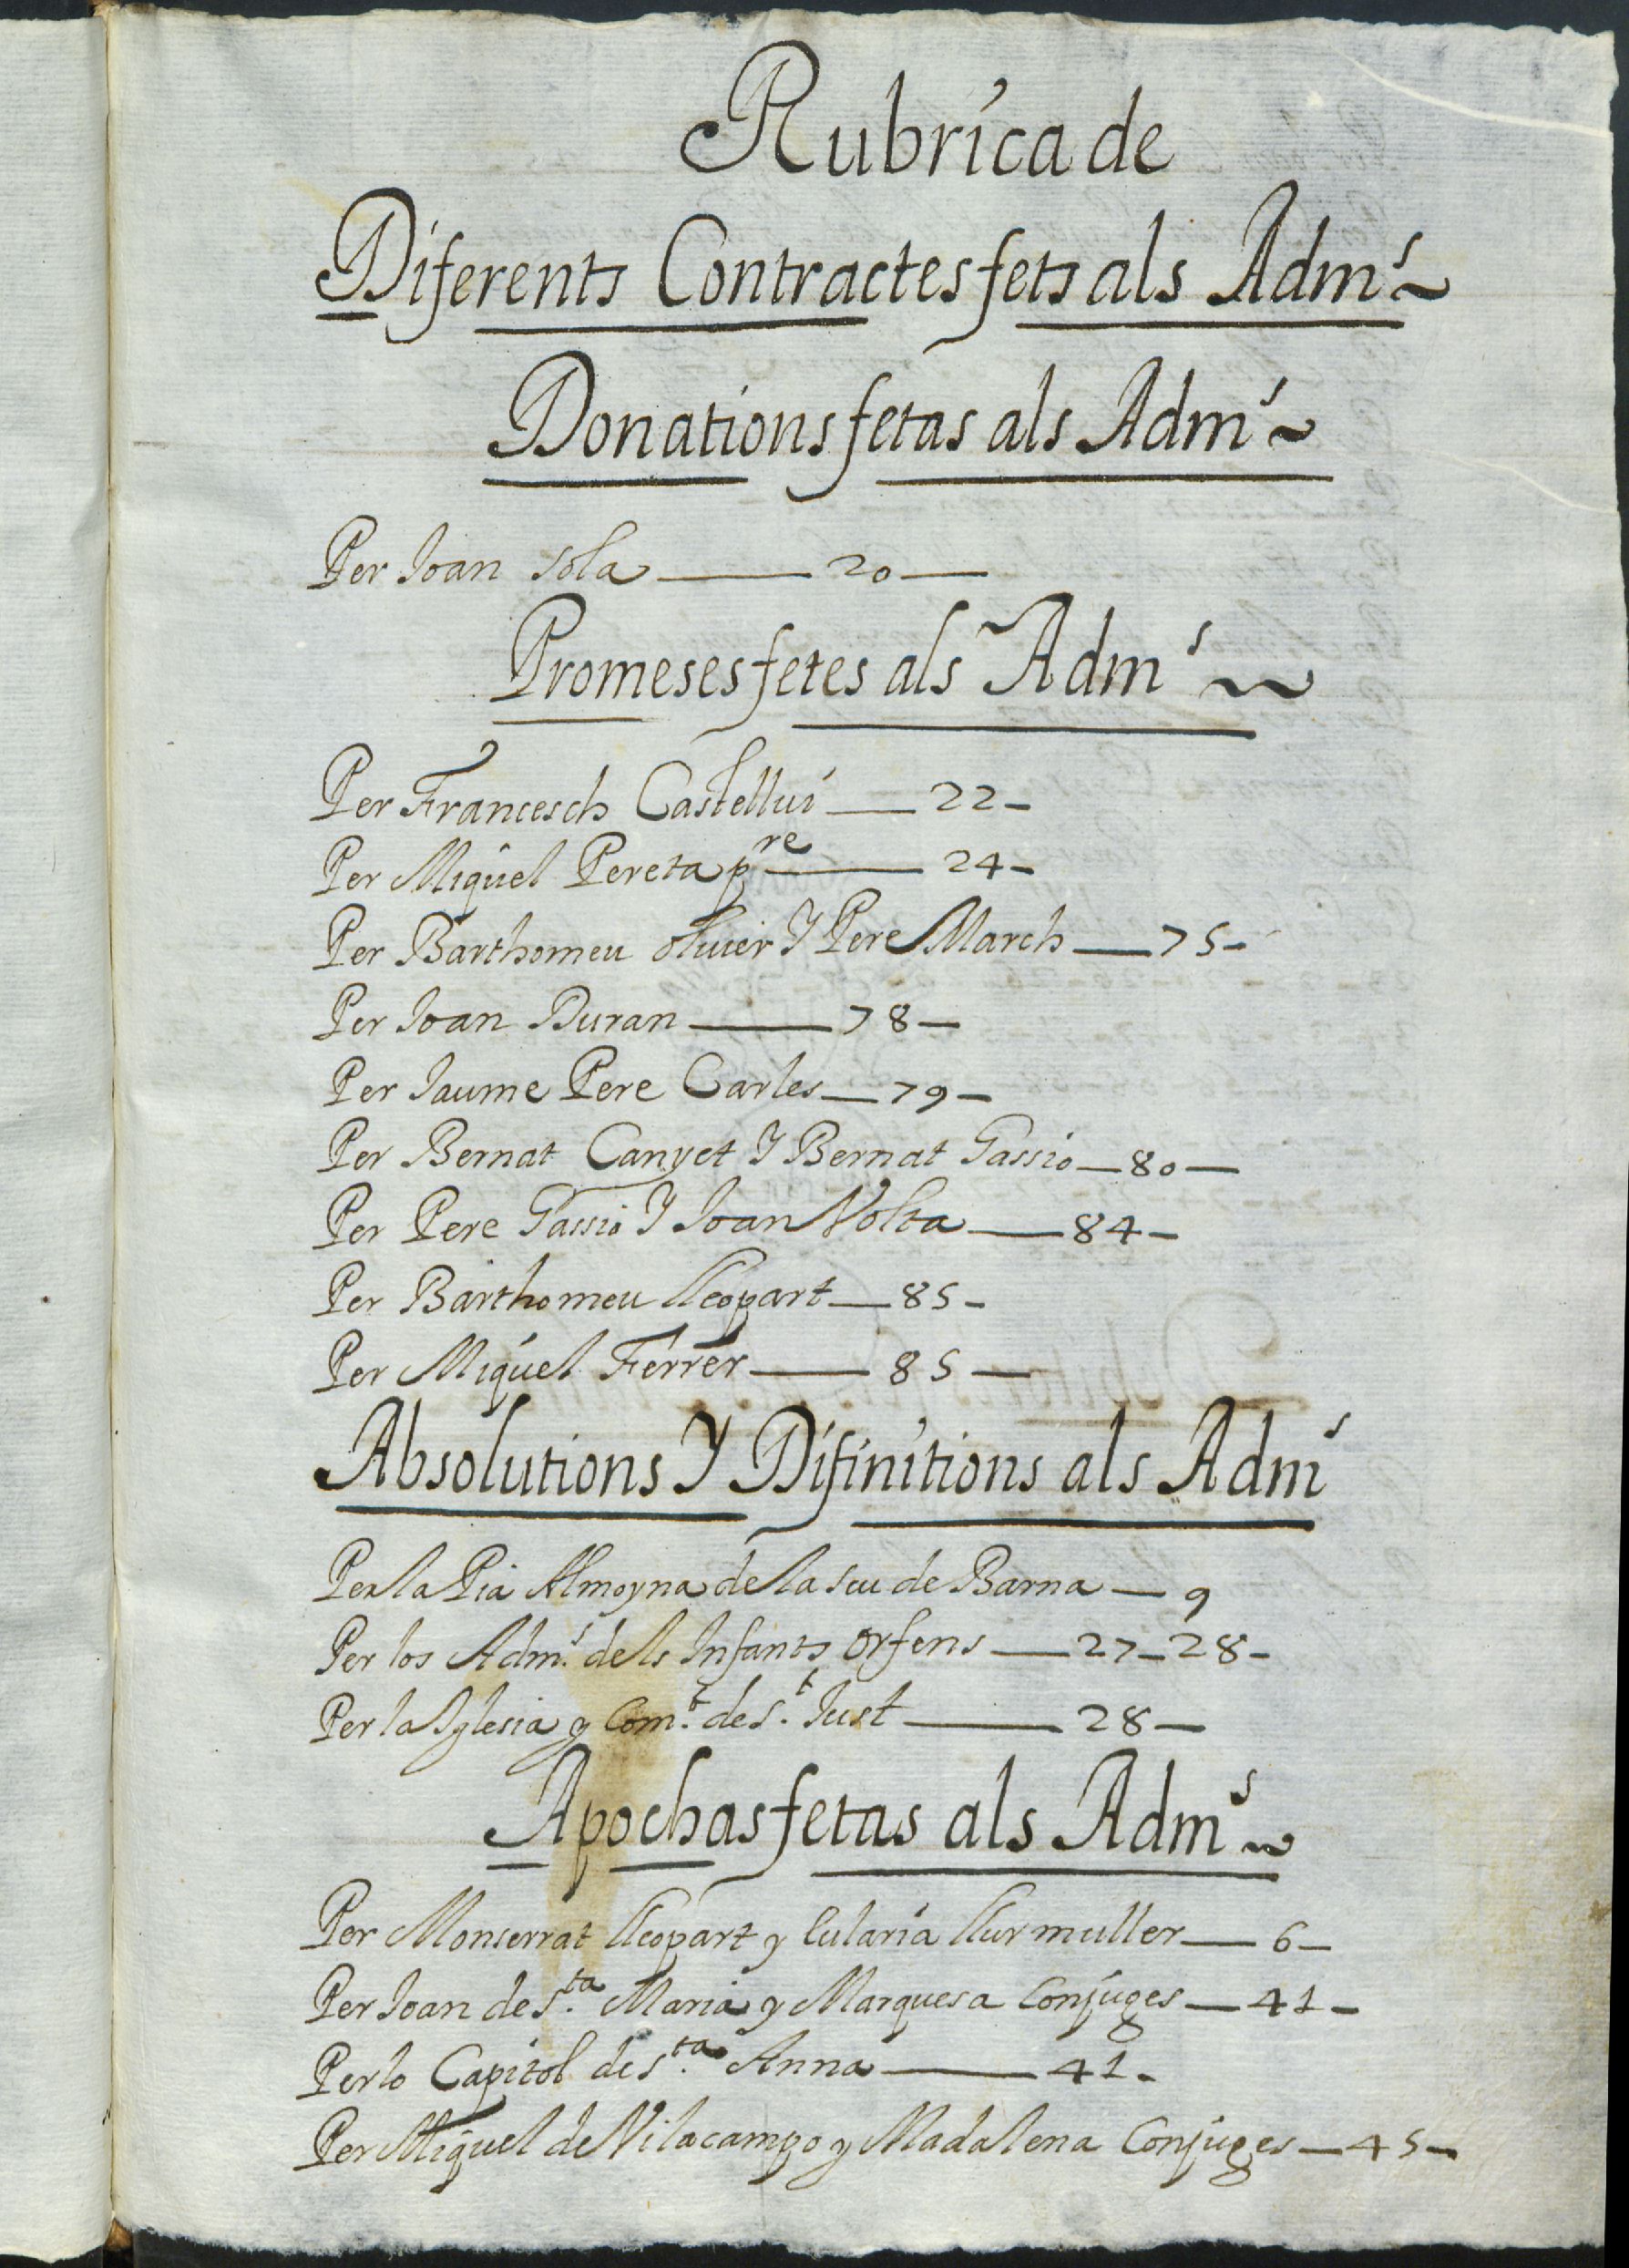 Rubrica de
Diferents Contractes fets als Adm.s
Donations fetas als Adm.s
Per Joan Sola — 20 —
Promeses fetes als Adm.s
Per Francesch Castellui — 22 —
Per Miquel Pereta p.re — 24 —
Per Barthomeu oliuer Y Pere March — 75 —
Per Joan Duran — 78 —
Per Jaume Pere Carles — 79 —
Per Bernat Canyet Y Bernat Gassio — 80 —
Per Pere Gassio Y Joan Volta — 84 —
Per Barthomeu lleopart — 85 —
Per Miquel Ferrer — 85 —
Absolutions Y Difinitions als Adm.s
Per la Pia Almoyna de la Seu de Barna — 9
Per los Adm.s dels Infants orfens — 27 — 28 —
Per la Iglesia y Com.t de S.t Just — 28 —
Apochas fetas als Adm.s
Per Monserrat lleopart y Eularia llur muller — 6 —
Per Joan de S.ta Maria y Marquesa Conjuges — 41 —
Per lo Capitol de S.ta Anna — 41 —
Per Miquel de Vilacampo y Madalena Conjuges — 45 —